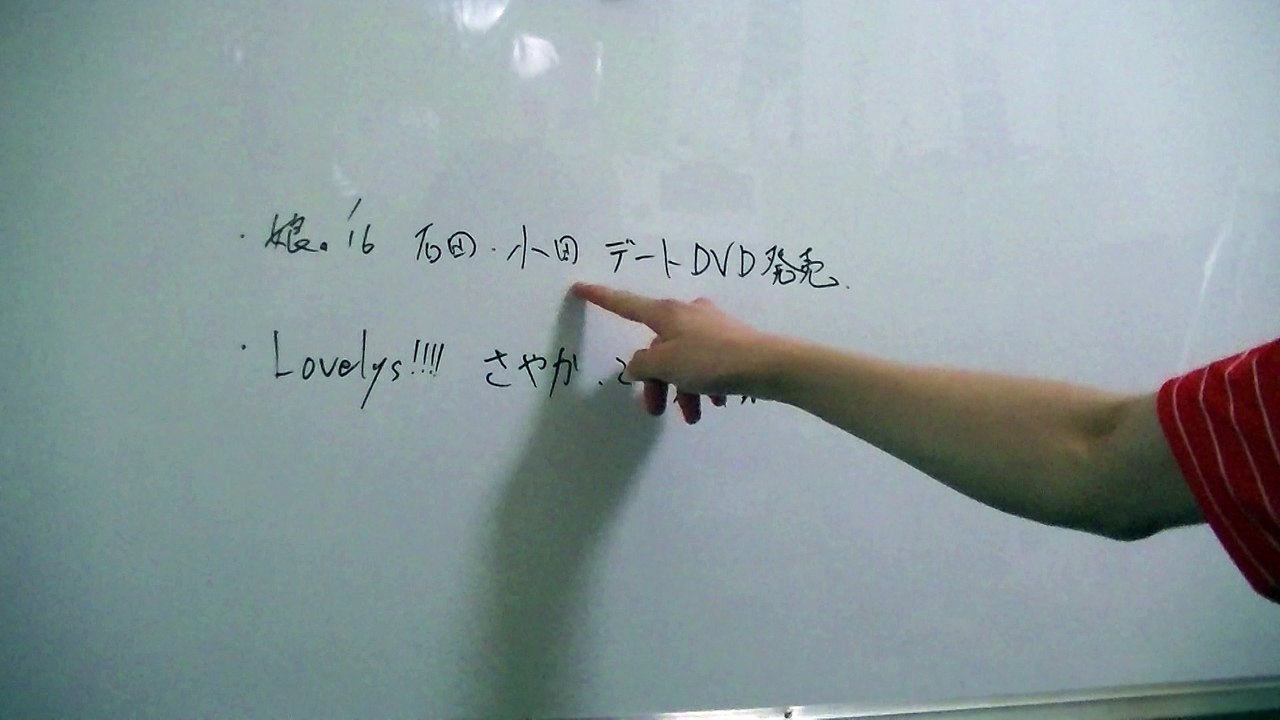 ・娘。'16 石田・小田 デートDVD発売.
・Lovelys!!!! さやか、